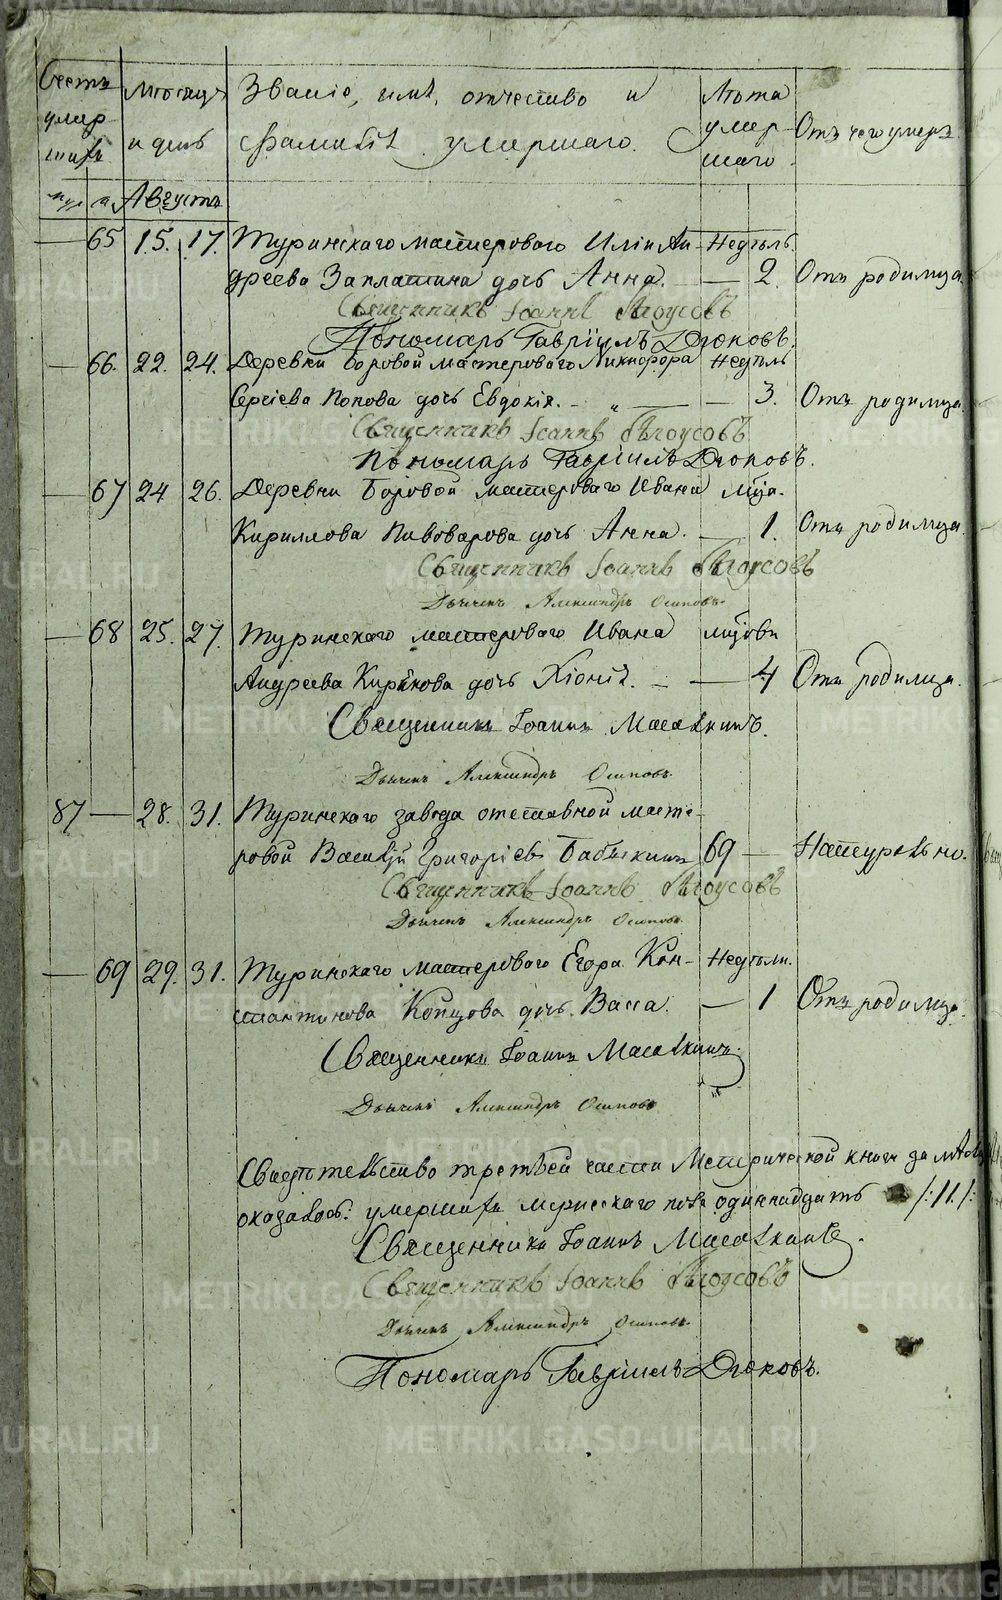 Счетъ умер- шихъ
Мѣсяцъ и день
Званіе, имя, отчество и
фамилія умершаго.
Лѣта умер- шаго.
Отъ чего умеръ
муж. ж. Августъ
— 65 15. 17. Туринскаго мастероваго Иліи Ан- Недѣль
дреева Заплатина дочь Анна. — 2. Отъ родимца.
Священникъ Іоаннъ Бѣлоусовъ
Пономарь Гавріилъ Дюковъ.
— 66. 22. 24. Деревни Боровой мастероваго Никифора Недѣль
Сергіева Попова дочь Евдокія. — „ — 3. Отъ родимца.
Священникъ Іоаннъ Бѣлоусовъ
Пономарь Гавріилъ Дюковъ.
— 67 24 26. Деревни Боровой мастероваго Ивана Мца.
Кириллова Пивоварова дочь Анна. — 1. Отъ родимца.
Священникъ Іоаннъ Бѣлоусовъ
Дьячекъ Александръ Осиповъ.
— 68 25. 27. Туринскаго мастероваго Ивана мцовъ
Андреева дочь Хіонія. — 4 Отъ родимца.
Священникъ Іоаннъ Масалкинъ.
Дьячекъ Александръ Осиповъ.
87 — 28. 31. Туринскаго завода отставной масте-
ровой Василій Григоріевъ Бабыкинъ 69 — Натурально.
Священникъ Іоаннъ Бѣлоусовъ
Дьячекъ Александръ Осиповъ
— 69 29. 31. Туринскаго мастероваго Егора Кон- Недѣли.
стантинова Копцова дочь Васса. — 1 Отъ родимца.
Священникъ Іоаннъ Масалкинъ.
Дьячекъ Александръ Осиповъ
Свидѣтельство третьей части Метрической книги за
оказалось: умершихъ мужескаго пола одиннадцать /:11:/
Священникъ Іоаннъ Масалкинъ.
Священникъ Іоаннъ Бѣлоусовъ
Дьячекъ Александръ Осиповъ
Пономарь Гавріилъ Дюковъ.
METRIKI.GASO-URAL.RU